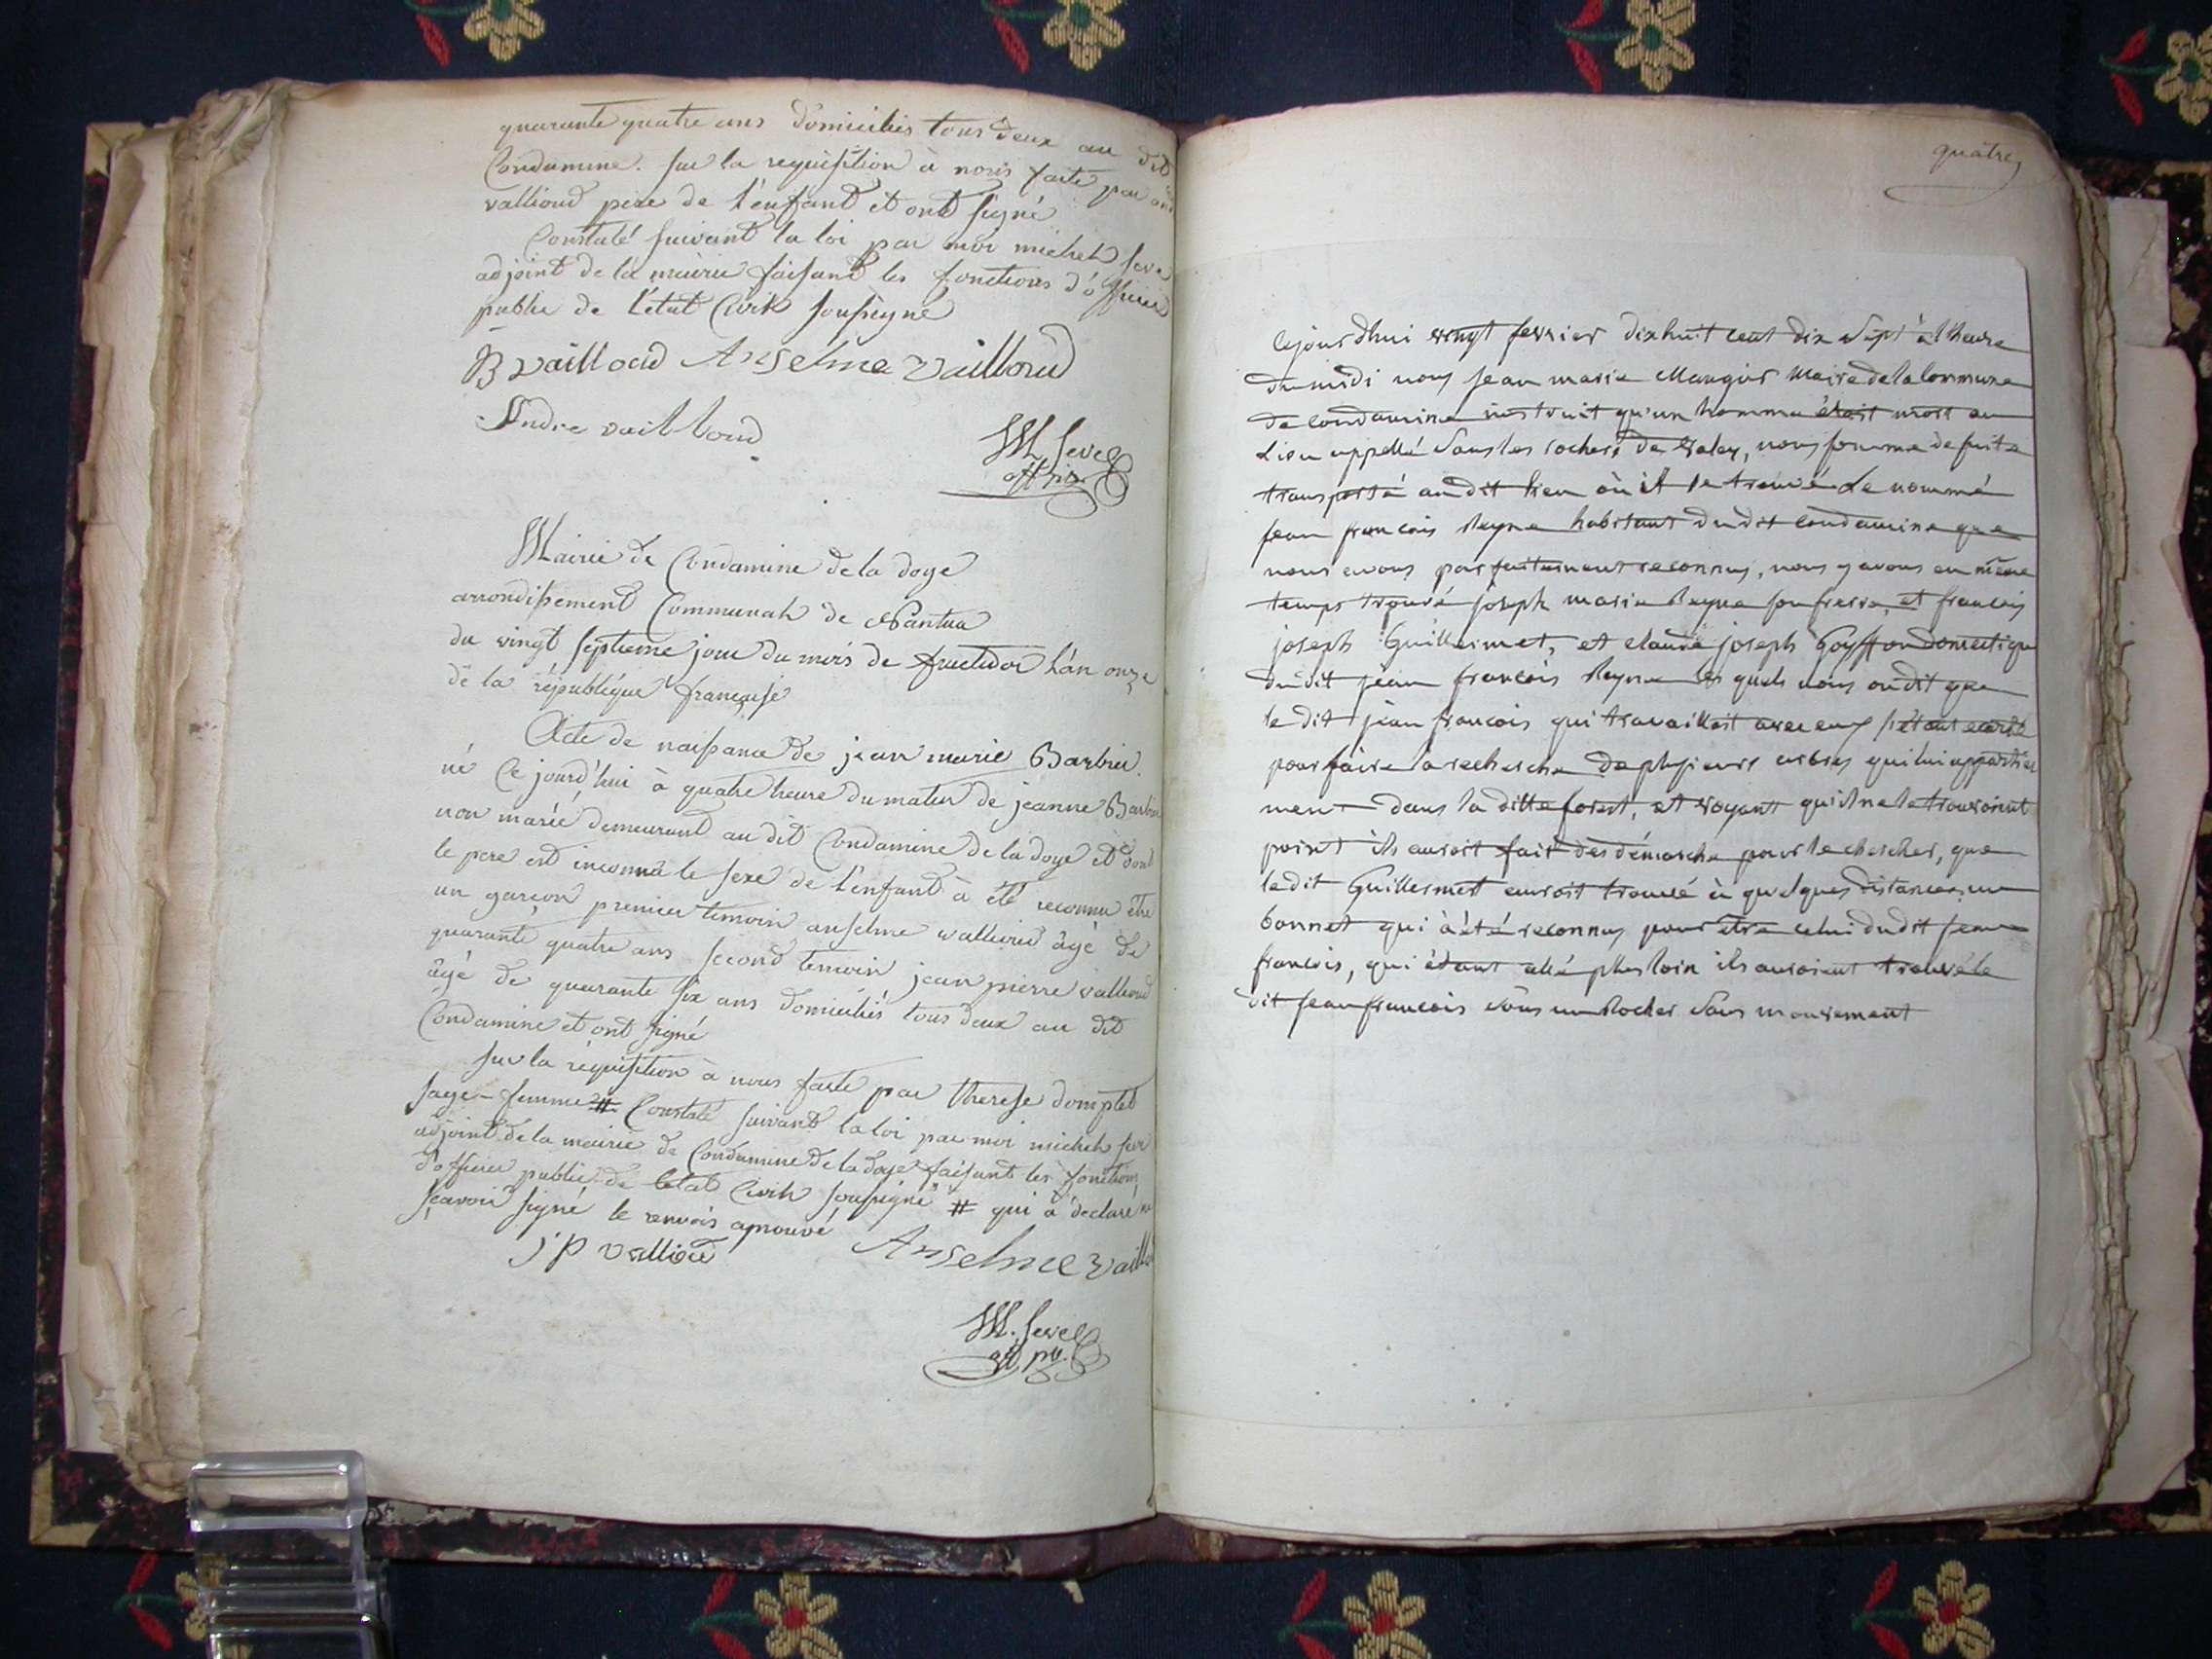 quarante quatre ans domiciliés tous deux au dit
Condamine. sur la requisition à nous faite par
vallioud pere de l'enfant et ont signé
Constaté suivant la loi par moi michel seve
adjoint de la mairie faisant les fonctions d'officier
public de l'état Civil soussigné
B vailloud Anselme vailloud
Andre vailloud
M Seve
Mairie de Condamine de la doye
arrondissement Communal de Nantua
du vingt septieme jour du mois de fructidor l'an onze
de la république française
Acte de naissance de jean marie Barbier
né Ce jourd'hui à quatre heure du matin de jeanne Barbier
non marié demeurant au dit Condamine de la doye et dont
le pere est inconnu le sexe de l'enfant à été reconnu être
un garçon premier temoin anselme vallioud âgé de
quarante quatre ans second temoin jean pierre vallioud
âgé de quarante six ans domiciliés tous deux au dit
Condamine et ont signé
sur la réquisition à nous faite par therese domptet
sage-femme # Constaté suivant la loi par moi michel seve
adjoint de la mairie de Condamine de la doye faisant les fonctions
d'officier public de letat Civil soussigné # qui à déclaré ne
sçavoir signé le renvois aprouvé
J P vallioud Anselme vaillo
M. Seve
quatre
cejourdhui vingt fevrier dix huit cent dix sept à l'heure
du midi nous jean marie Maugier Maire de la Commune
de Condamine instruit qu'un homme étoit mort au
Lieu appellé sous les rochers de , nous somme de suite
transporté au dit lieu où il se trouvé Le nommé
jean francois Reyne habitant dudit Condamine que
nous avons parfaitement reconnus, nous y avons en même
temps trouvé joseph marie Reyne son frere, et francois
joseph Guillermet, et claude joseph Goyffon domestique
dudit jean françois Reyne les quels nous on dit que
le dit jean françois qui travailloit avec eux s'étant écarté
pour faire la recherche de plusieurs arbres qui lui appartien
nent dans la ditte forest, et voyant qu'il ne le trouvoient
point ils auroit fait des démarche pour le chercher, que
ledit Guillermet auroit trouvé à quelques distances un
bonnet qui à été reconnus pour être celui dudit jean
francois, qui étant allé plus loin ils auroient trouvé le
dit jean francois sous un Rocher sans mouvement